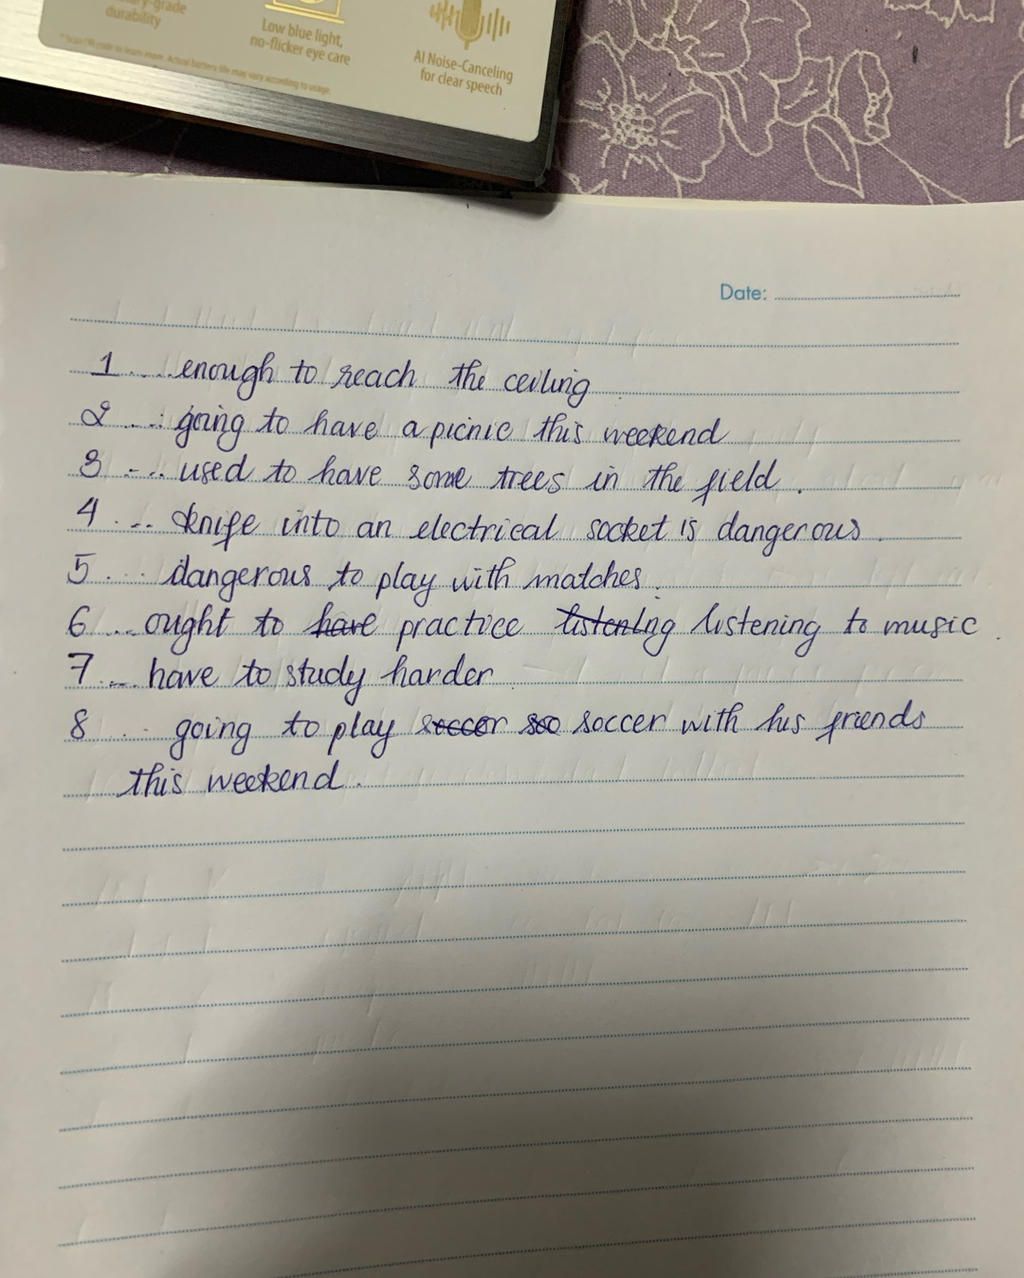 durability
Low blue light,
no-flicker eye care
AI Noise-Canceling
for clear speech
* Scan QR code to learn more. Actual battery life may vary according to usage.
Date:
1 .... enough to reach the ceiling
2 .... going to have a picnic this weekend
3 ... used to have some trees in the field .
4 ... knife into an electrical socket is dangerous .
5 ... dangerous to play with matches .
6 ... ought to have practice listening listening to music .
7 ... have to study harder .
8 ... going to play soccer soo soccer with his friends
this weekend .